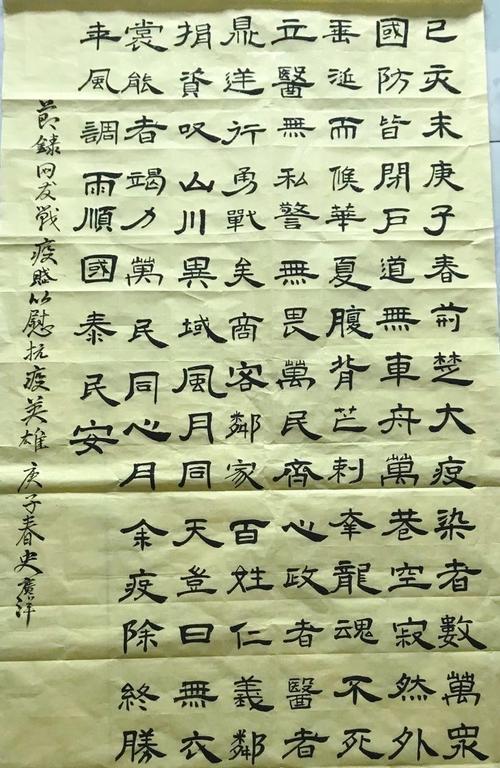 已亥末庚子春荊楚大疫染者數萬眾
國防皆閉戶道無車舟萬巷空寂然外
垂涎而候華夏腹背芒刺幸龍魂不死
立醫無私警無畏萬民齊心政者醫者
鼎逆行勇戰矣商客鄰家百姓仁義鄰
捐資叹山川異域風月同天豈曰無衣
裳能者竭力萬民同心月余疫除終勝
年風調雨順國泰民安
節錄网友戰疫賦以慰抗疫英雄 庚子春史